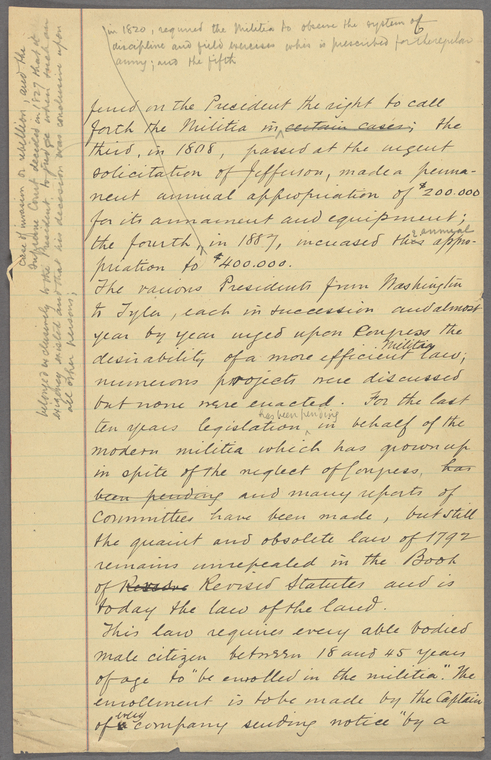 6
in 1820, required the Militia to observe the system of
discipline and field exercises which is prescribed for the regular
army; and the fifth
ferred on the President the right to call
forth the Militia in certain cases; the
third, in 1808, passed at the urgent
solicitation of Jefferson, made a perma-
nent annual appropriation of $200.000
for its armament and equipment;
the fourth, in 1887, increased this annual appro-
priation to $400.000.
The various Presidents from Washington
to Tyler, each in succession and almost
year by year urged upon Congress the
desirability of a more efficient Militia law;
numerous projects were discussed
but none were enacted. For the last
ten years legislation has been pending in behalf of the
modern militia which has grown up
in spite of the neglect of Congress, has
been pending and many reports of
Committees have been made, but still
the quaint and obsolete law of 1792
remains unrepealed in the Book
of Revised Statutes and is
today the law of the land.
This law requires every able bodied
male citizen between 18 and 45 years
of age to "be enrolled in the militia". The
enrollment is to be made by the Captain
of every company sending notice "by a
case of invasion or rebellion, and the
Supreme Court decided in 1827 that it
belonged exclusively to the President to judge when such an
exigency existed and that his decision was conclusive upon
all other persons;